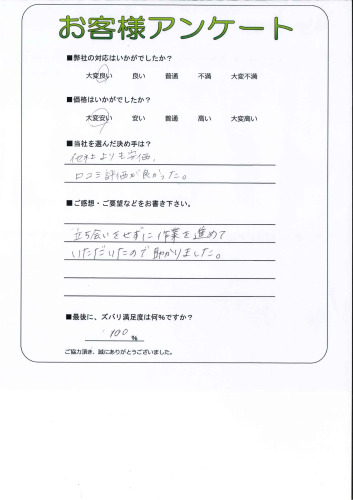 お客様アンケート
■弊社の対応はいかがでしたか?
大変良い 良い 普通 不満 大変不満
■価格はいかがでしたか?
大変安い 安い 普通 高い 大変高い
■当社を選んだ決め手は?
他社よりも安価,
口コミ評価が良かった。
■ご感想・ご要望などをお書き下さい。
立ち会いをせずに作業を進めて
いただいたので助かりました。
■最後に、ズバリ満足度は何%ですか?
100 %
ご協力頂き、誠にありがとうございました。